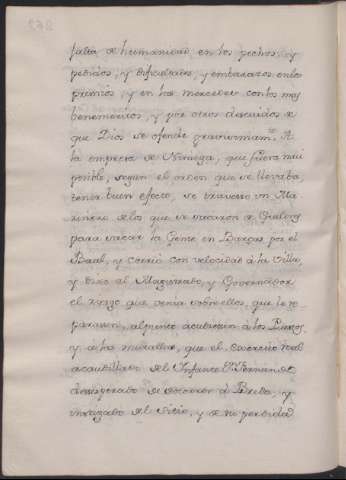 falta de humanidad en los pechos, y
pedidos, y dificultades, y embarazos en los
premios, y en las mercedes con los mas
benemeritos, y por otros descuidos de
que Dios se ofende gravissimamte. A
la empresa de Nimega, que fuera mui
posible, segun el orden que se llevaba
tener buen efecto, se travesso un Ma
rinero de los que se vacaron de
para vacar la Gente en Barcas por el
Baal, y corrió con velocidad á la Villa,
y dixo al Magistrado, y Governador
el riesgo que venia sobre ellos, que lo re
parassen, al punto acudieron á los Puestos,
y á las murallas, que el Exercito Real
acaudillado del Infante Dn. Fernando
desesperado de socorrer á Breda, y
del Sitio, y de su perdida